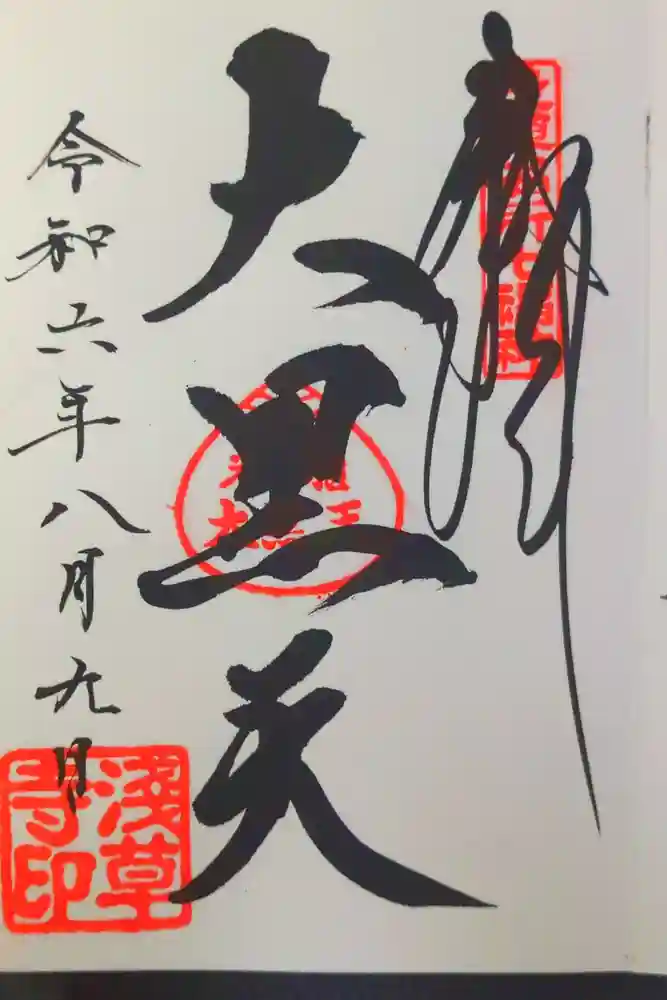 奉拝
大黒天
令和六年八月九日
浅草寺印